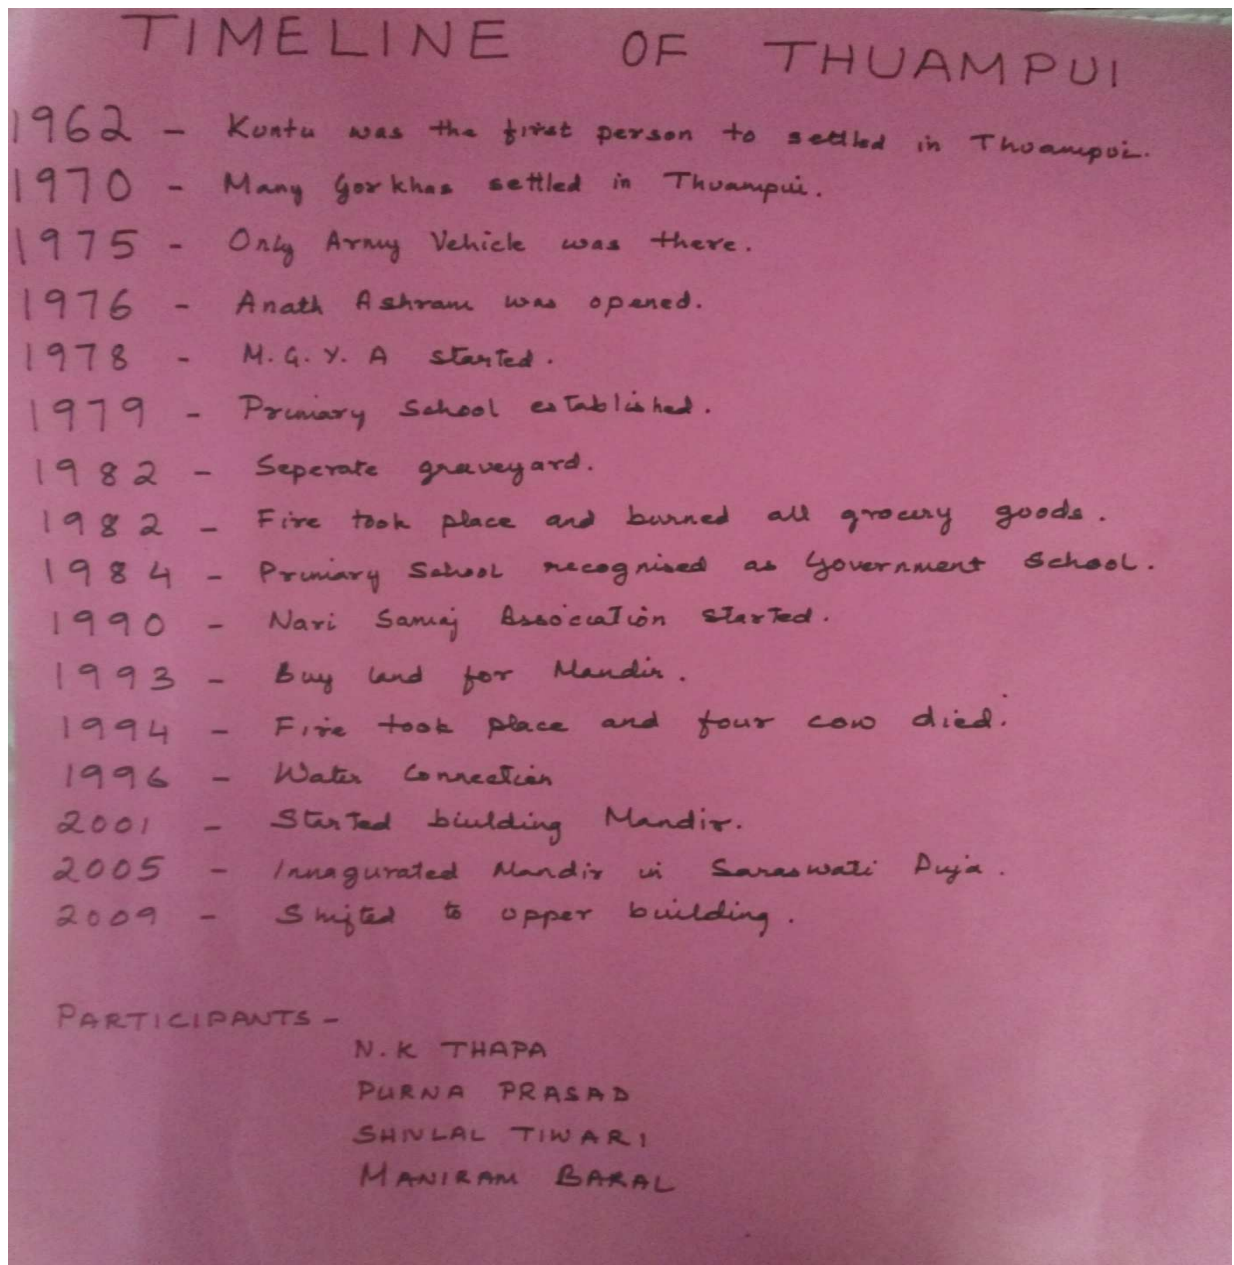 TIMELINE OF THUAMPUI
1962 - Kuntu was the first person to settled in Thuampui.
1970 - Many Gorkhas settled in Thuampui.
1975 - Only Army Vehicle was there.
1976 - Anath Ashram was opened.
1978 - M.G.Y.A started.
1979 - Primary School established.
1982 - Seperate graveyard.
1982 - Fire took place and burned all grocery goods.
1984 - Primary School recognised as Government School.
1990 - Nari Samaj Association started.
1993 - Buy land for Mandir.
1994 - Fire took place and four cow died.
1996 - Water Connection
2001 - Started biulding Mandir.
2005 - Innagurated Mandir in Saraswati Puja.
2009 - Shifted to upper building.
PARTICIPANTS -
N.K THAPA
PURNA PRASAD
SHIVLAL TIWARI
MANIRAM BARAL